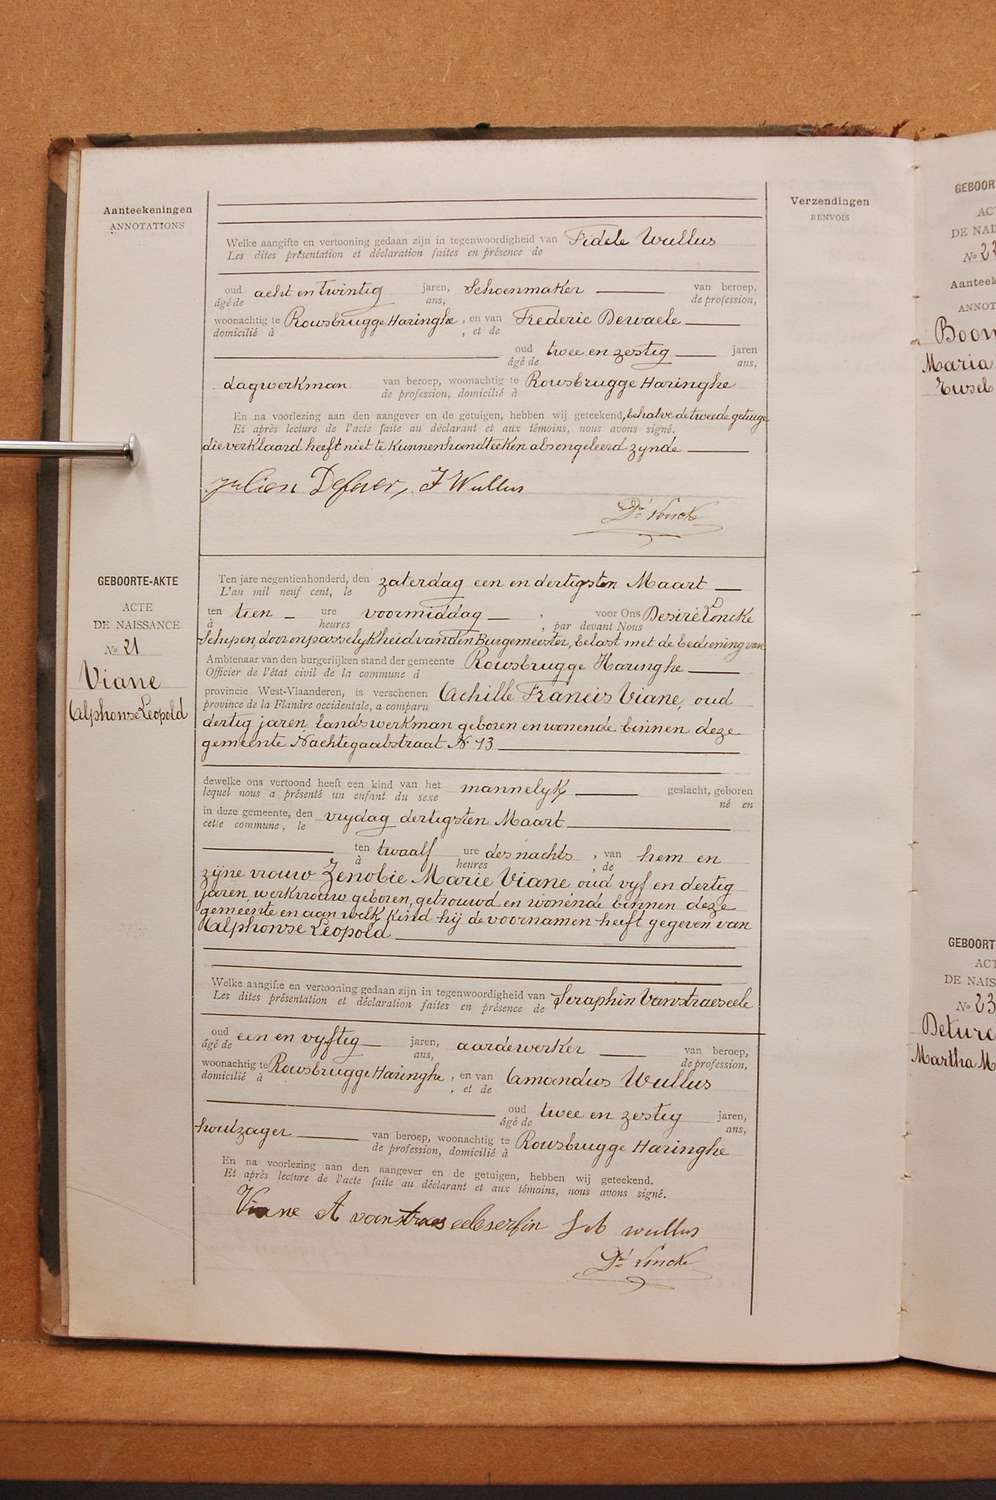 Aanteekeningen
ANNOTATIONS
Verzendingen
RENVOIS
Welke aangifte en vertooning gedaan zijn in tegenwoordigheid van Fidele Wullus
Les dites présentation et déclaration faites en présence de
oud acht en twintig jaren, Schoenmaker van beroep,
âgé de ans, de profession,
woonachtig te Rousbrugge Haringhe, en van Frederic Dewaele
domicilié à , et de
oud twee en zestig jaren
âgé de ans,
dagwerkman van beroep, woonachtig te Rousbrugge Haringhe
de profession, domicilié à
En na voorlezing aan den aangever en de getuigen, hebben wij geteekend, behalve de tweede getuige
Et après lecture de l'acte faite au déclarant et aux témoins, nous avons signé.
die verklaard heeft niet te kunnen handteeken als ongeleerd zynde
F Wullus
GEBOORTE-AKTE
ACTE
DE NAISSANCE
No 21
Viane
Alphonse Leopold
Ten jare negentienhonderd, den zaterdag een en dertigsten Maart
L'an mil neuf cent, le
ten tien ure voormiddag , voor Ons Desiré Loncke
à heures ; par devant Nous
Schepen, door onpasselykheid van den Burgemeester, belast met de bediening van
Ambtenaar van den burgerlijken stand der gemeente Rousbrugge Haringhe
Officier de l'état civil de la commune d
provincie West-Vlaanderen, is verschenen Achille Francis Viane, oud
province de la Flandre occidentale, a comparu
dertig jaren landswerkman geboren en wonende binnen deze
gemeente Nachtegaalstraat No 13
dewelke ons vertoond heeft een kind van het mannelyk geslacht, geboren
lequel nous a présenté un enfant du sexe né en
in deze gemeente, den vrydag dertigsten Maart
cette commune, le
ten twaalf ure des nachts, van hem en
à heures , de
zyne vrouw Zenobie Marie Viane, oud vyf en dertig
jaren, werkvrouw, geboren, getrouwd en wonende binnen deze
gemeente en aan welk kind hij de voornamen heeft gegeven van
Alphonse Leopold
Welke aangifte en vertooning gedaan zijn in tegenwoordigheid van Seraphin Vanstraeseele
Les dites présentation et déclaration faites en présence de
oud een en vyftig jaren, aardewerker van beroep,
âgé de ans, de profession,
woonachtig te Rousbrugge Haringhe, en van Amandus Wullus
domicilié à , et de
oud twee en zestig jaren,
âgé de ans,
houtzager van beroep, woonachtig te Rousbrugge Haringhe
de profession, domicilié à
En na voorlezing aan den aangever en de getuigen, hebben wij geteekend.
Et après lecture de l'acte faite au déclarant et aux témoins, nous avons signé.
Viane A wullus
Dr Loncke
GEBOORT
DE NAIS
No 23
Maria